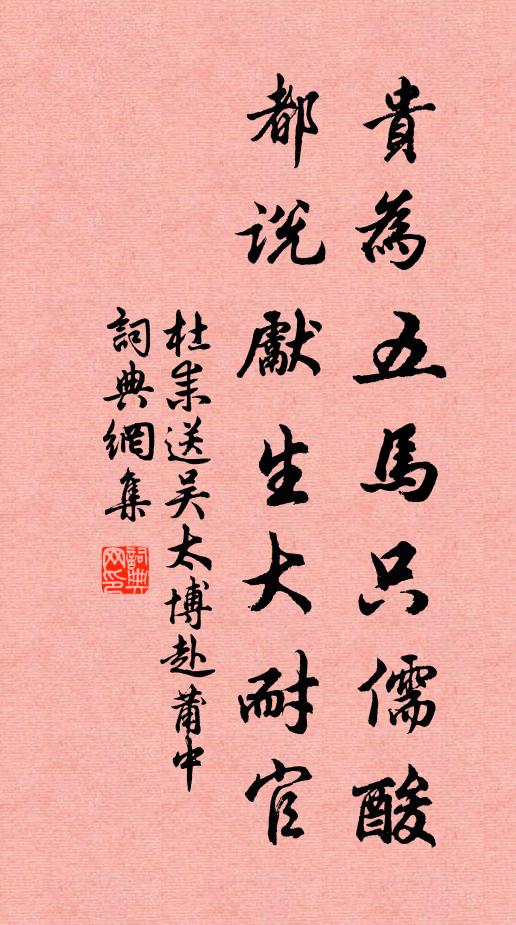 貴為五馬只儒酸
都說獻生大耐官
杜耒送吴太博赴莆中
詞典網集
詞典网印